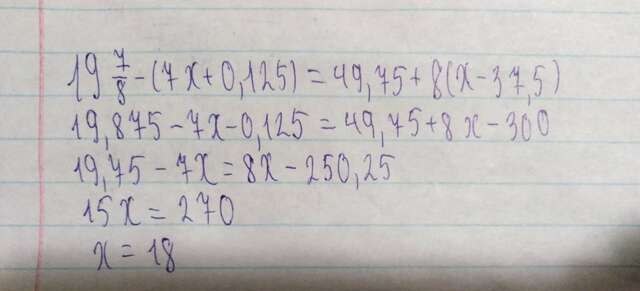 19 7/8 - (7x + 0,125) = 49,75 + 8(x - 37,5)
19,875 - 7x - 0,125 = 49,75 + 8x - 300
19,75 - 7x = 8x - 250,25
15x = 270
x = 18